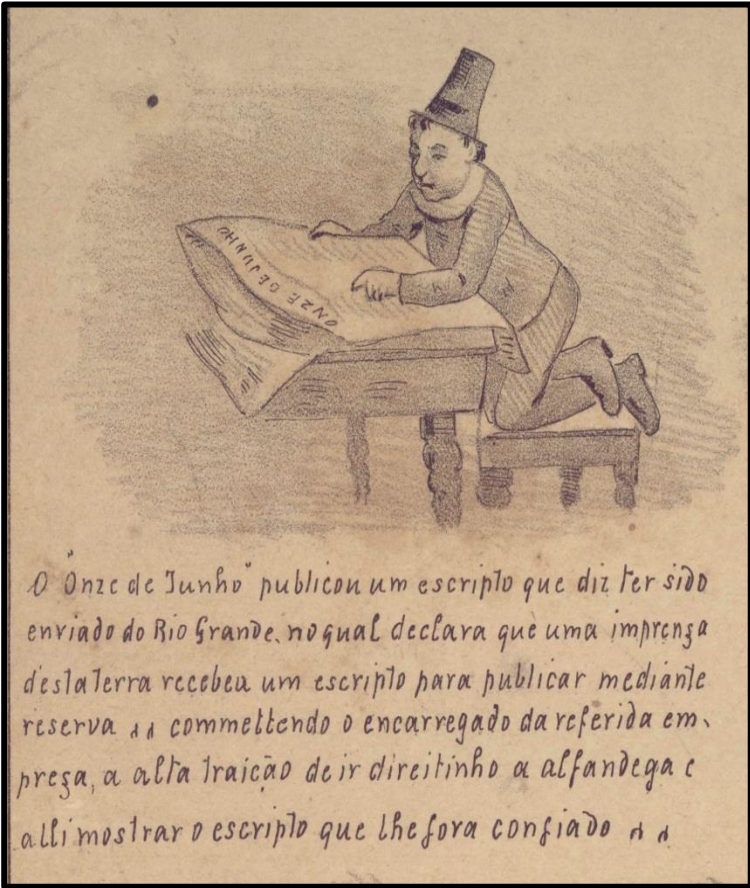 ONZE DE JUNHO
O "Onze de Junho" publicou um escripto que diz ter sido
enviado do Rio Grande, no qual declara que uma imprensa
desta terra recebeu um escripto para publicar mediante
reserva „ commettendo o encarregado da referida em-
preza, a alta traição de ir direitinho a alfandega e
alli mostrar o escripto que lhe fora confiado „